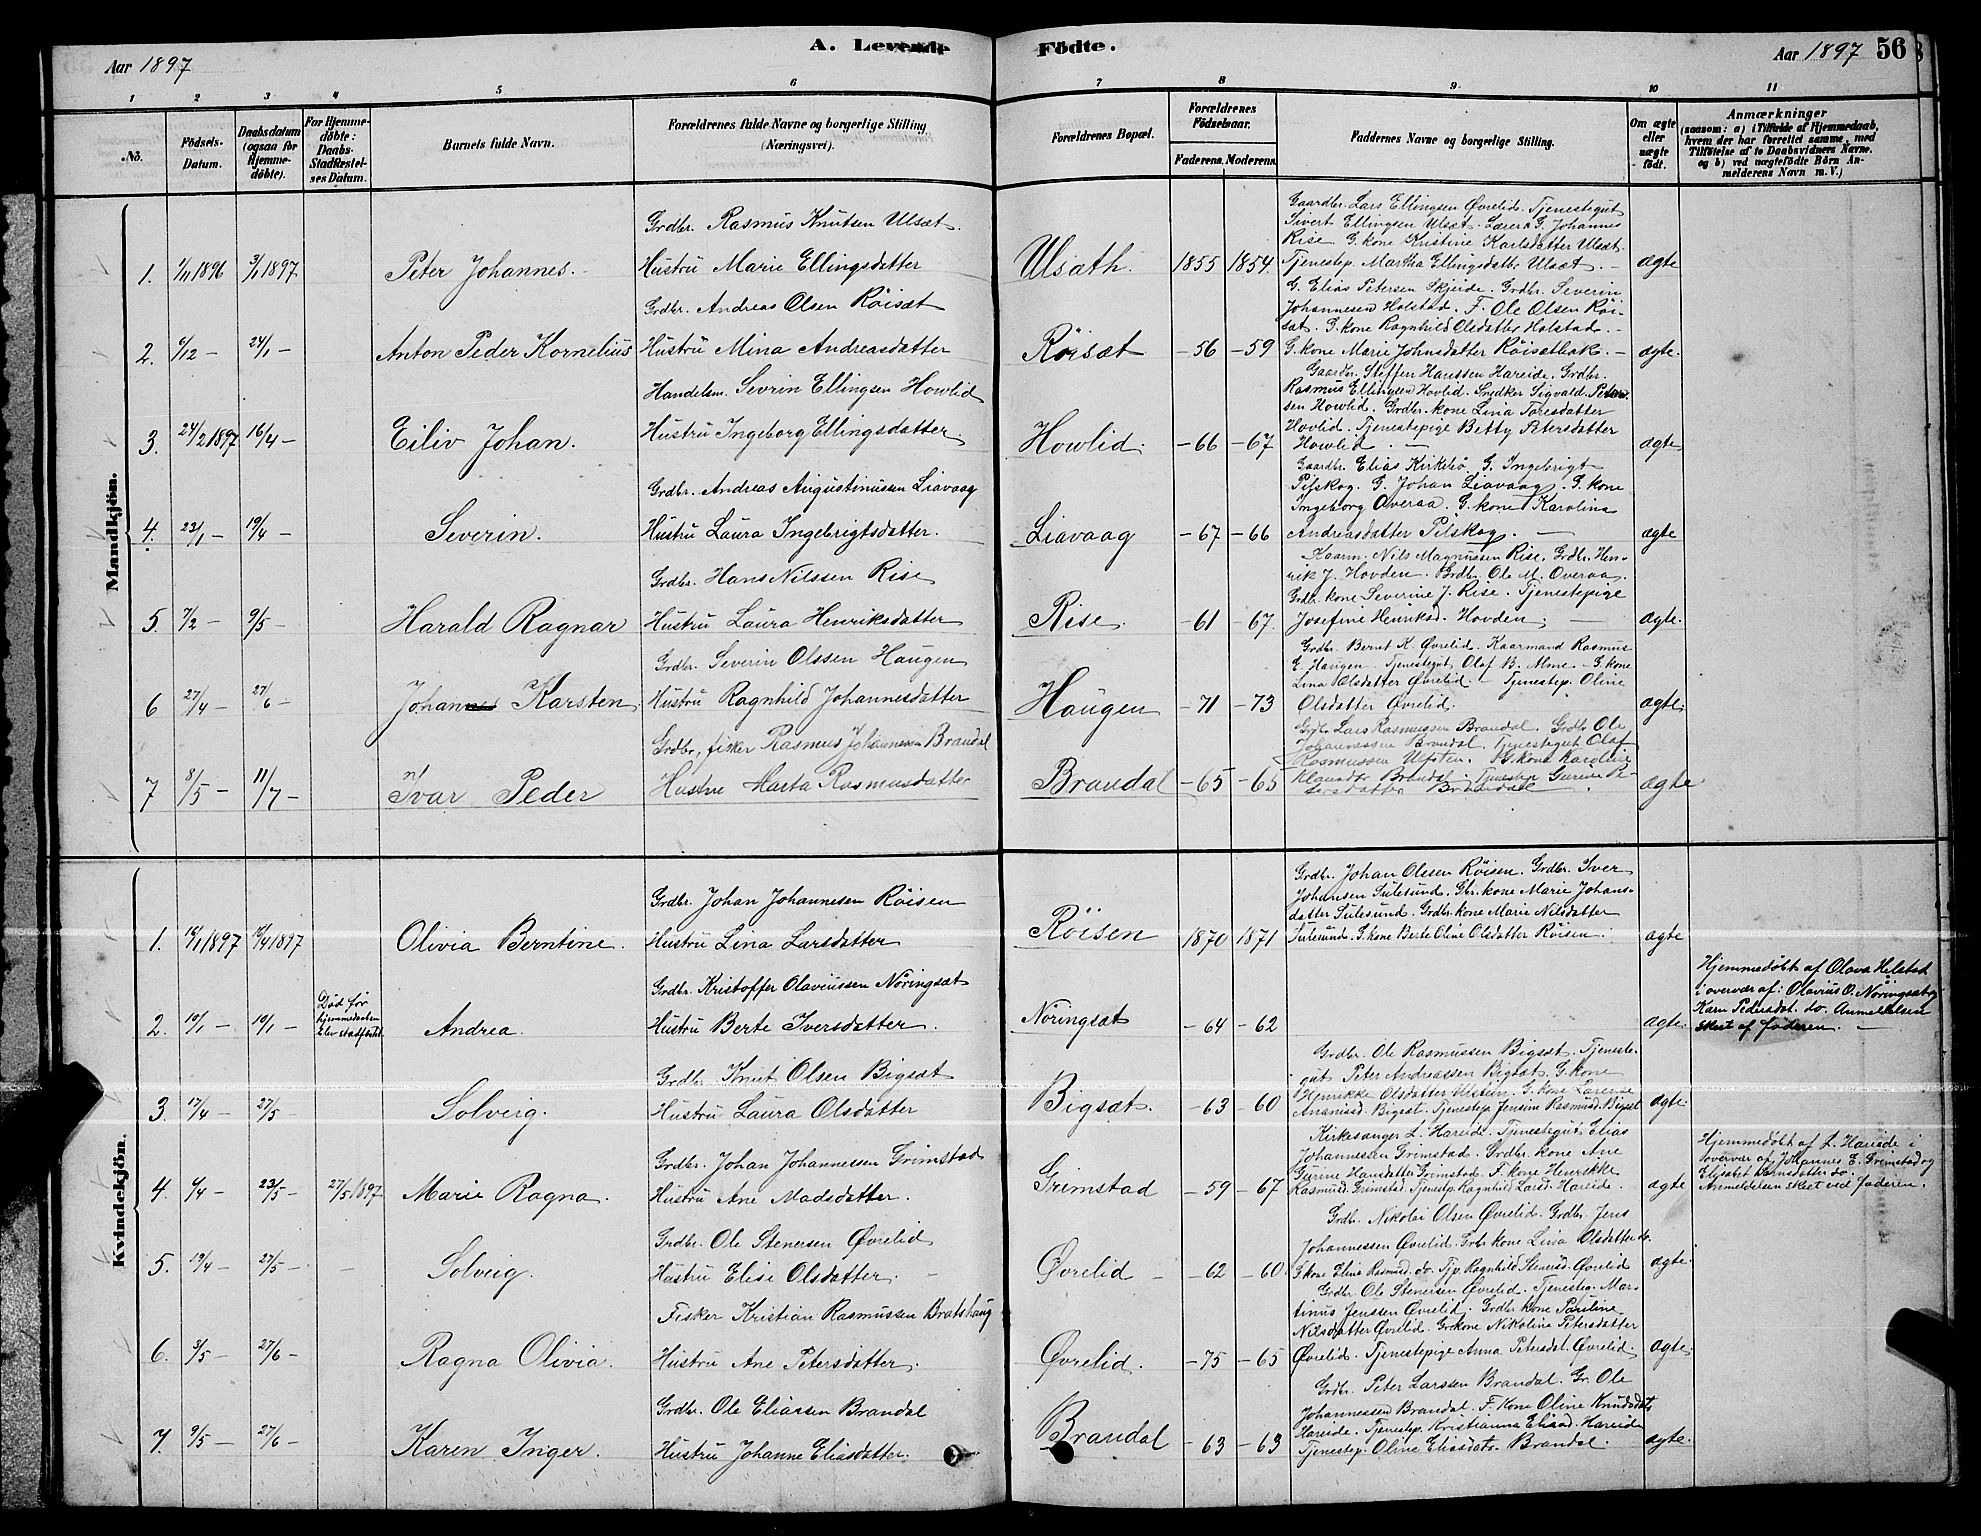 A. Levende Födte.
Aar 1897
Aar 1897 56
1 2 3 4 5 6 7 8 9 10 11
No.
Födsels-Datum.
Daabsdatum (ogsaa for Hjemme-döbte).
For Hjemme-döbte: Daabs-Stadfæstel-ses Datum.
Barnets fulde Navn.
Forældrenes fulde Navne og borgerlige Stilling (Næringsvei).
Forældrenes Bopæl.
Forældrenes Födselsaar.
Faderens. Moderens.
Faddernes Navne og borgerlige Stilling.
Om ægte eller uægte födt.
Anmærkninger
(saasom: a) i Tilfælde af Hjemmedaab, hvem der har forrettet samme, med Tilföielse af to Daabsvidners Navne, og b) ved uægtefödte Börn An-melderens Navn m. V.)
Mandkjön.
Grdbr. Rasmus Knutsen Ulsæt.
1. 1/11 1896 3/1 1897 Peter Johannes. Hustru Marie Ellingsdatter Ulsæth. 1855 1854 ægte
Gaardbr. Lars Ellingsen Øvrelid. Tjenestegut
Sivert Ellingsen Ulsæt. Lærer G. Johannes
Rise G. kone Kristine Karlsdatter Ulsæt.
Tjenestep. Martha Ellingsdatter Ulsæt.
Grdbr. Andreas Olsen Röisæt
2. 6/12 – 24/1 – Anton Peder Kornelius Hustru Mina Andreasdatter Röisæt – 56 – 59 ægte.
G. Elias Petersen Skjeide. Grdbr. Severin
Johannesen Holstad. F. Ole Olsen Röi-
sæt. G. kone Ragnhild Olsdatter Holstad.
G. kone Marie Johnsdatter Röisætbak.
Handelsm. Sevrin Ellingsen Howlid
3. 24/2 1897 16/4 – Eiliv Johan. Hustru Ingeborg Ellingsdatter Howlid. – 66 – 67 ægte
Gaardbr. Steffen Hanssen Hareide. Grdbr.
Rasmus Ellingsen Hovlid. Snedker Sigvald Peter-
sen Howlid. Grdbr. kone Lina Toresdatter
Hovlid. Tjenestepige Betty Petersdatter
Howlid
Grdbr. Andreas Augustinussen Liavaag
4. 23/1 – 19/4 – Severin. Hustru Laura Ingebrigtsdatter. Liavaag – 67 – 66 ægte
Gaardbr. Elias Kirkebö. G. Ingebrigt
Pilskog. G. Johan Liavaag. G. kone
Ingeborg Overaa. G. kone Karolina
Andreasdatter Pilskog.
Grdbr. Hans Nilssen Rise
5. 7/2 – 9/5 – Harald Ragnar Hustru Laura Henriksdatter Rise. – 61 – 67. ægte.
Kaarm. Nils Magnussen Rise. Grdbr. Hen-
rik J. Hovden. Grdbr. Ole M. Overaa.
Grdbr. kone Severine J. Rise. Tjenestepige
Josefine Henriksd. Hovden.
Grdbr. Severin Olssen Haugen
6 27/4 – 27/6 – Johan Karsten Hustru Ragnhild Johannesdatter Haugen – 71 – 73 ægte.
Grdbr. Bernt K. Øvrelid. Kaarmand Rasmus
E. Haugen. Tjenestegut Olaf B. Alme. G. kone
Lina Olsdatter Øvrelid. – Tjenestep. Oline
Olsdatter Øvrelid.
Grdbr. fisker Rasmus Johannessen Brandal
7 8/5 – 11/7 – Ivar Peder Hustru Marta Rasmusdatter Brandal – 65 – 65 ægte
Grdbr. Lars Rasmussen Brandal. Grdbr. Ole
Johannessen Brandal. Tjenestegut Olaf
Rasmussen Ulsten. G. kone Karoline
Brandal. Tjenestep. Gurine Pe-
tersdatter Brandal.
Kvindekjön.
Grdbr. Johan Johannesen Röisen
1. 1897 19/4 1897 Olivia Berntine. Hustru Lina Larsdatter Röisen 1870 1871 ægte
Grdbr. Johan Olssen Röisen. Grdbr. Iver
Johansen Sulesund. Gbr. kone Marie Johans-
datter Sulesund. Grdbr. kone Marie Nilsdatter
Sulesund. G. kone Berte Oline Olsdatter Röisen.
Grdbr. Kristoffer Olaviussen Nöringsæt
2. 19/1 – 19/1 – Død før hjemmedaaben blev stadfæstet Andrea. Hustru Berte Iversdatter. Nöringsæt – 64 – 62 ægte.
Hjemmedøbt af Olava Helstad
i overvær af: Olavius O. Nöringsæt og
Karn Pedersdat. do. Anmeldelsen
skeet af faderen. –
Grdbr. Knut Olsen Bigsæt
3. 17/4 – 27/5 – Solveig. Hustru Laura Olsdatter Bigsæt. – 63 – 60 ægte.
Grdbr. Ole Rasmussen Bigsæt. Tjeneste-
gut Peter Andreassen Bigsæt. G. kone
Henrikke Olsdatter Ulstein. G. kone Larense
Ananiasd. Bigsæt. Tjenestep. Jensine Rasmusd. Bigset
Grdbr. Johan Johannessen Grimstad
4. 6/4 – 23/5 – 27/5 1897 Marie Ragna. Hustru Ane Madsdatter. Grimstad – 59 – 67 ægte
Kirkesanger L. Hareide. Tjenestegut Elias
Johannessen Grimstad. Grdbr. kone Ane
Gurine Hansdatter Grimstad. F. kone Henrikke
Rasmusd. Grimstad. Tjenestep. Ragnhild Larsd. Hareide.
Hjemmedöbt af L. Hareide i
overvær af Johannes E. Grimstad og
Elisabet do.
Anmeldelsen skeet ved faderen.
Grdbr. Ole Stenersen Øvrelid
5. 19/4 – 27/5 – – Solveig. Hustru Elise Olsdatter. – Øvrelid – – 62 – 60. ægte.
Grdbr. Nikolai Olsen Øvrelid. Grdbr. Jens
Johannessen Øvrelid. Grbr. kone Lina Olsdatter do.
G. kone Elina Rasmusd. do. Tjp. Ragnhild Stenersd. Øvrelid
Fisker Kristian Rasmussen Bratshaug
6. 3/5 – 27/6 – Ragna Olivia. Hustru Ane Petersdatter. Øvrelid. – 75 – 65 ægte.
Grdbr. Ole Stenersen Øvrelid. Tjenesteg. Mar-
tinus Jenssen Øvrelid. Grdbr. kone Pauline
Nilsdatter Øvrelid. Gr. kone Nikoline Petersdatter
Øvrelid. Tjenestepige Anna Petersdat. Øvrelid.
Grdbr. Ole Eliassen Brandal
7. 9/5 – 27/6 – Karen Inger. Hustru Johanne Eliasdatter. Brandal – 63 – 63 ægte.
Grdbr. Peter Larssen Brandal. Gr. Ole
Johannessen Brandal. F. kone Oline Knudsdat.
Hareide. Tjenestep. Kristianna Eliasd. Hareide
Tjenestep. Oline Eliasdat. Brandal.